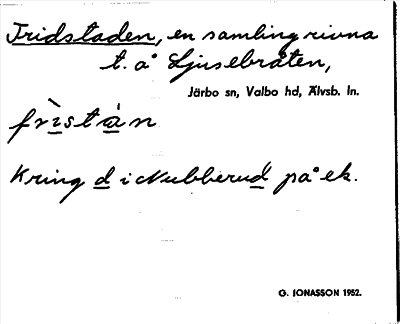 Fridstaden, en samling rivna
t. å Ljusebråten,
Järbo sn, Valbo hd, Älvsb. ln.
frìstàn
Kring d i Nubberud på ek.
G. JONASSON 1952.